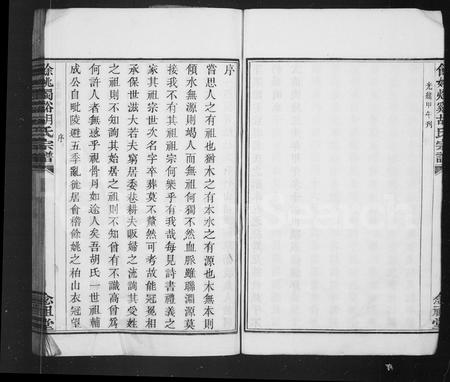 會姚燭谿胡氏宗譜
光緒甲午列
念祖堂
序
嘗思人之有祖也猶木之有本水之有源也木無本則
傾水無源則竭人而無祖何獨不然血脈雖聯淵源莫
接我不有其祖祖宗何樂乎有我哉每見詩書禮義之
家其祖宗世次名字卒葬莫不釐然可考故能冠冕相
承保世滋大若夫窮居委巷耕夫販婦之流詢其受姓
之祖則不知詢其始居之祖則不知曾有不識高曾爲
何許人者無惑乎視骨肉如途人矣吾胡氏一世祖輔
成公自毗陵避五季亂徙居會稽餘姚之柏山衣冠望
餘姚燭谿胡氏宗譜
序
念祖堂